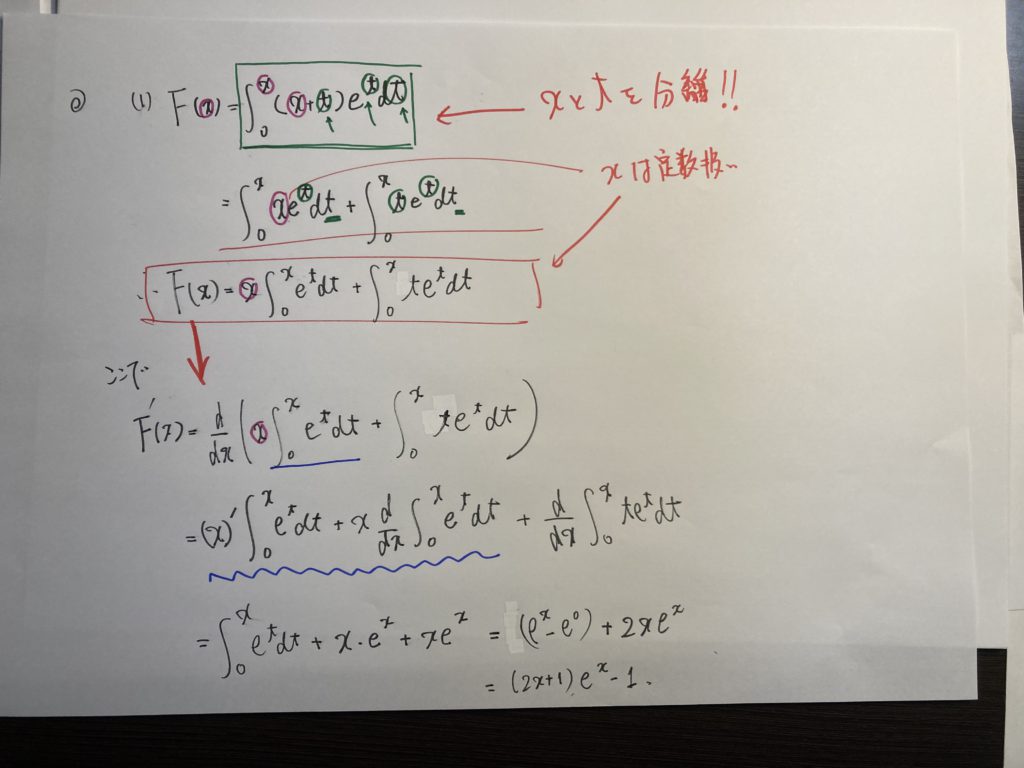 ② (1) F(x) = ∫₀ˣ (x+t)eᵗdt ← xとtを分離!!
= ∫₀ˣ xeᵗdt + ∫₀ˣ teᵗdt
xは定数扱い
∴ F(x) = x∫₀ˣ eᵗdt + ∫₀ˣ teᵗdt
ここで
F'(x) = d/dx (x∫₀ˣ eᵗdt + ∫₀ˣ teᵗdt)
= (x)'∫₀ˣ eᵗdt + x d/dx ∫₀ˣ eᵗdt + d/dx ∫₀ˣ teᵗdt
= ∫₀ˣ eᵗdt + x·eˣ + xeˣ = (eˣ-e⁰) + 2xeˣ
= (2x+1)eˣ - 1.